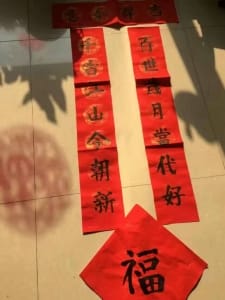 百世歲月當代好
千古江山今朝新
福